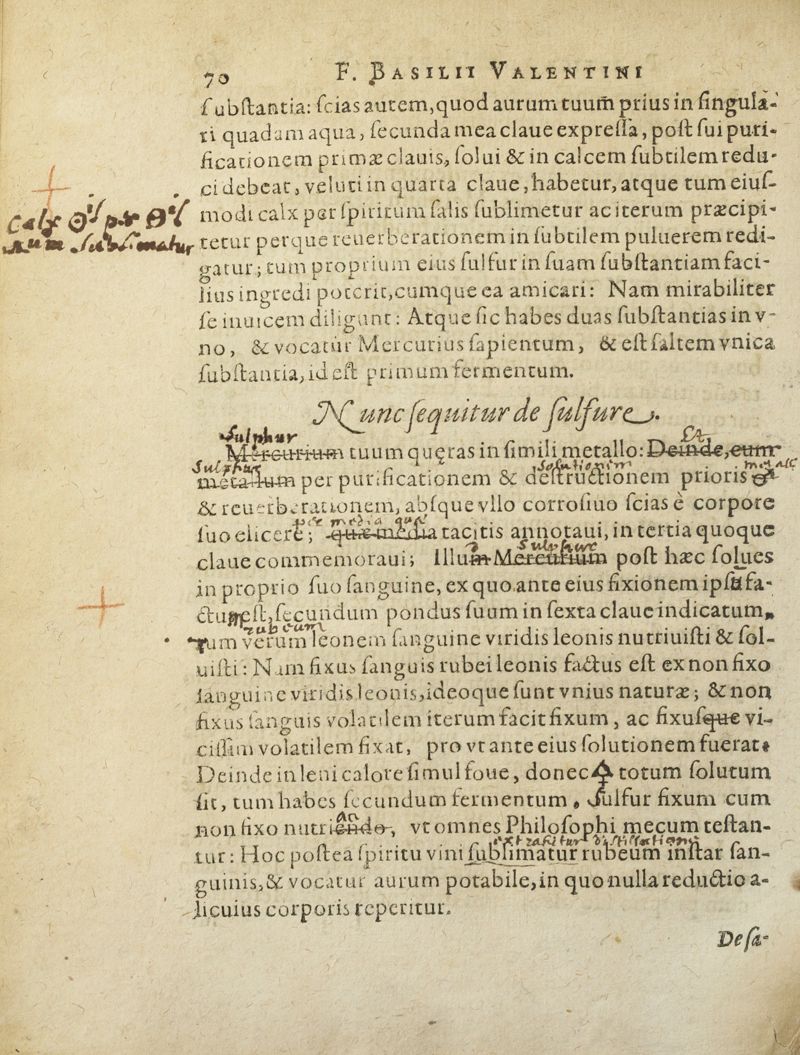 70 F. BASILII VALENTINI
ſubſtantia: ſcias autem, quod aurum tuum̃ prius in ſingula-
ri quadam aqua, ſecunda mea claue expreſſa, poſt ſui puri-
ficationem primæ clauis, ſolui & in calcem ſubtilem redu-
ci debeat, veluti in quarta claue, habetur, atque tum eiuſ-
Calx
modi calx per ſpiritum ſalis ſublimetur ac iterum præcipi-
ſublimatur
tetur perque reuerberationem in ſubtilem puluerem redi-
gatur; tum proprium eius ſulfur in ſuam ſubſtantiam faci-
lius ingredi poterit, cumque ea amicari: Nam mirabiliter
ſe inuicem diligunt: Atque ſic habes duas ſubſtantias in v-
no, & vocatur Mercurius ſapientum, & eſt ſaltem vnica
ſubſtantia, id eſt primum fermentum.
Nunc ſequitur de ſulfure.
Sulphur
Mercurium tuum quęras in ſimili metallo: Deinde, cum
Sulphur ſolutionem
metallum per purificationem & deſtructionem prioris
& reuerberationem, abſque vllo corroſiuo ſcias è corpore
media
ſuo elicere; quæ media tacitis annotaui, in tertia quoque
Sulphure
claue commemoraui; Illum Mercurium poſt hæc ſolues
in proprio ſuo ſanguine, ex quo ante eius fixionem ipſ fa-
ctu eſt, ſecundum pondus ſuum in ſexta claue indicatum,
rubeum
tum verum leonem ſanguine viridis leonis nutriuiſti & ſol-
uiſti: Nam fixus ſanguis rubei leonis factus eſt ex non fixo
ſanguine viridis leonis, ideoque ſunt vnius naturæ; & non
fixus ſanguis volatilem iterum facit fixum, ac fixuſque vi-
ciſſim volatilem fixat, pro vt ante eius ſolutionem fuerat:
Deinde in leni calore ſimul foue, donec totum ſolutum
ſit, tum habes ſecundum fermentum, Sulfur fixum cum
non fixo nutriendo, vt omnes Philoſophi mecum teſtan-
tur: Hoc poſtea ſpiritu vini ſublimatur rubeum inſtar ſan-
guinis, & vocatur aurum potabile, in quo nulla reductio a-
licuius corporis reperitur.
De ſa-